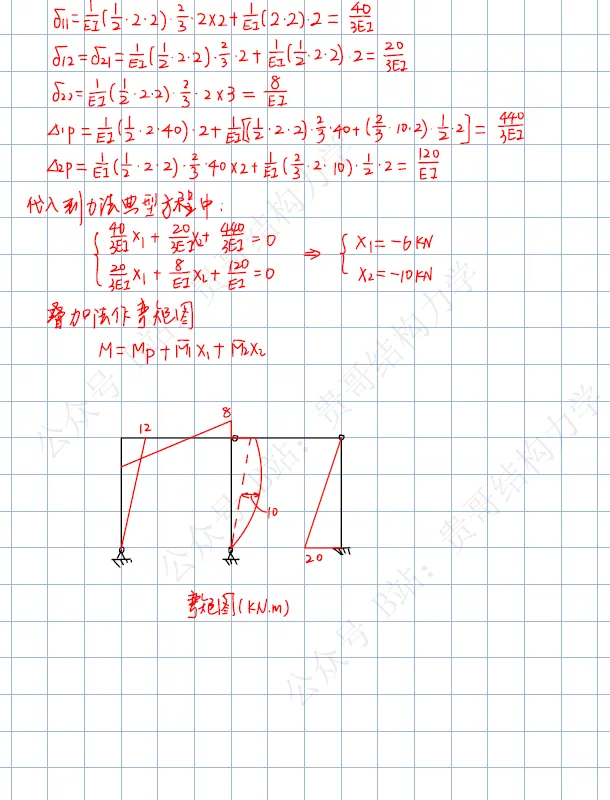 δ11=1/EI(1/2·2·2)·2/3·2×2+1/EI(2·2)·2=40/3EI
δ12=δ21=1/EI(1/2·2·2)·2/3·2+1/EI(1/2·2·2)·2=20/3EI
δ22=1/EI(1/2·2·2)·2/3·2×3=8/EI
Δ1P=1/EI(1/2·2·40)·2+1/EI[(1/2·2·2)·2/3·40+(2/3·10·2)·1/2·2]=440/3EI
Δ2P=1/EI(1/2·2·2)·2/3·40×2+1/EI(2/3·2·10)·1/2·2=120/EI
代入到力法典型方程中:
{40/3EI X1+20/3EI X2+440/3EI=0 ⇒ {X1=-6KN
20/3EI X1+8/EI X2+120/EI=0 X2=-10KN
叠加法作弯矩图
M=MP+M̄1X1+M̄2X2
8
12
10
20
弯矩图(KN.m)
公众号 B站:贵哥结构力学
公众号 B站:贵哥结构力学
公众号 B站:贵哥结构力学